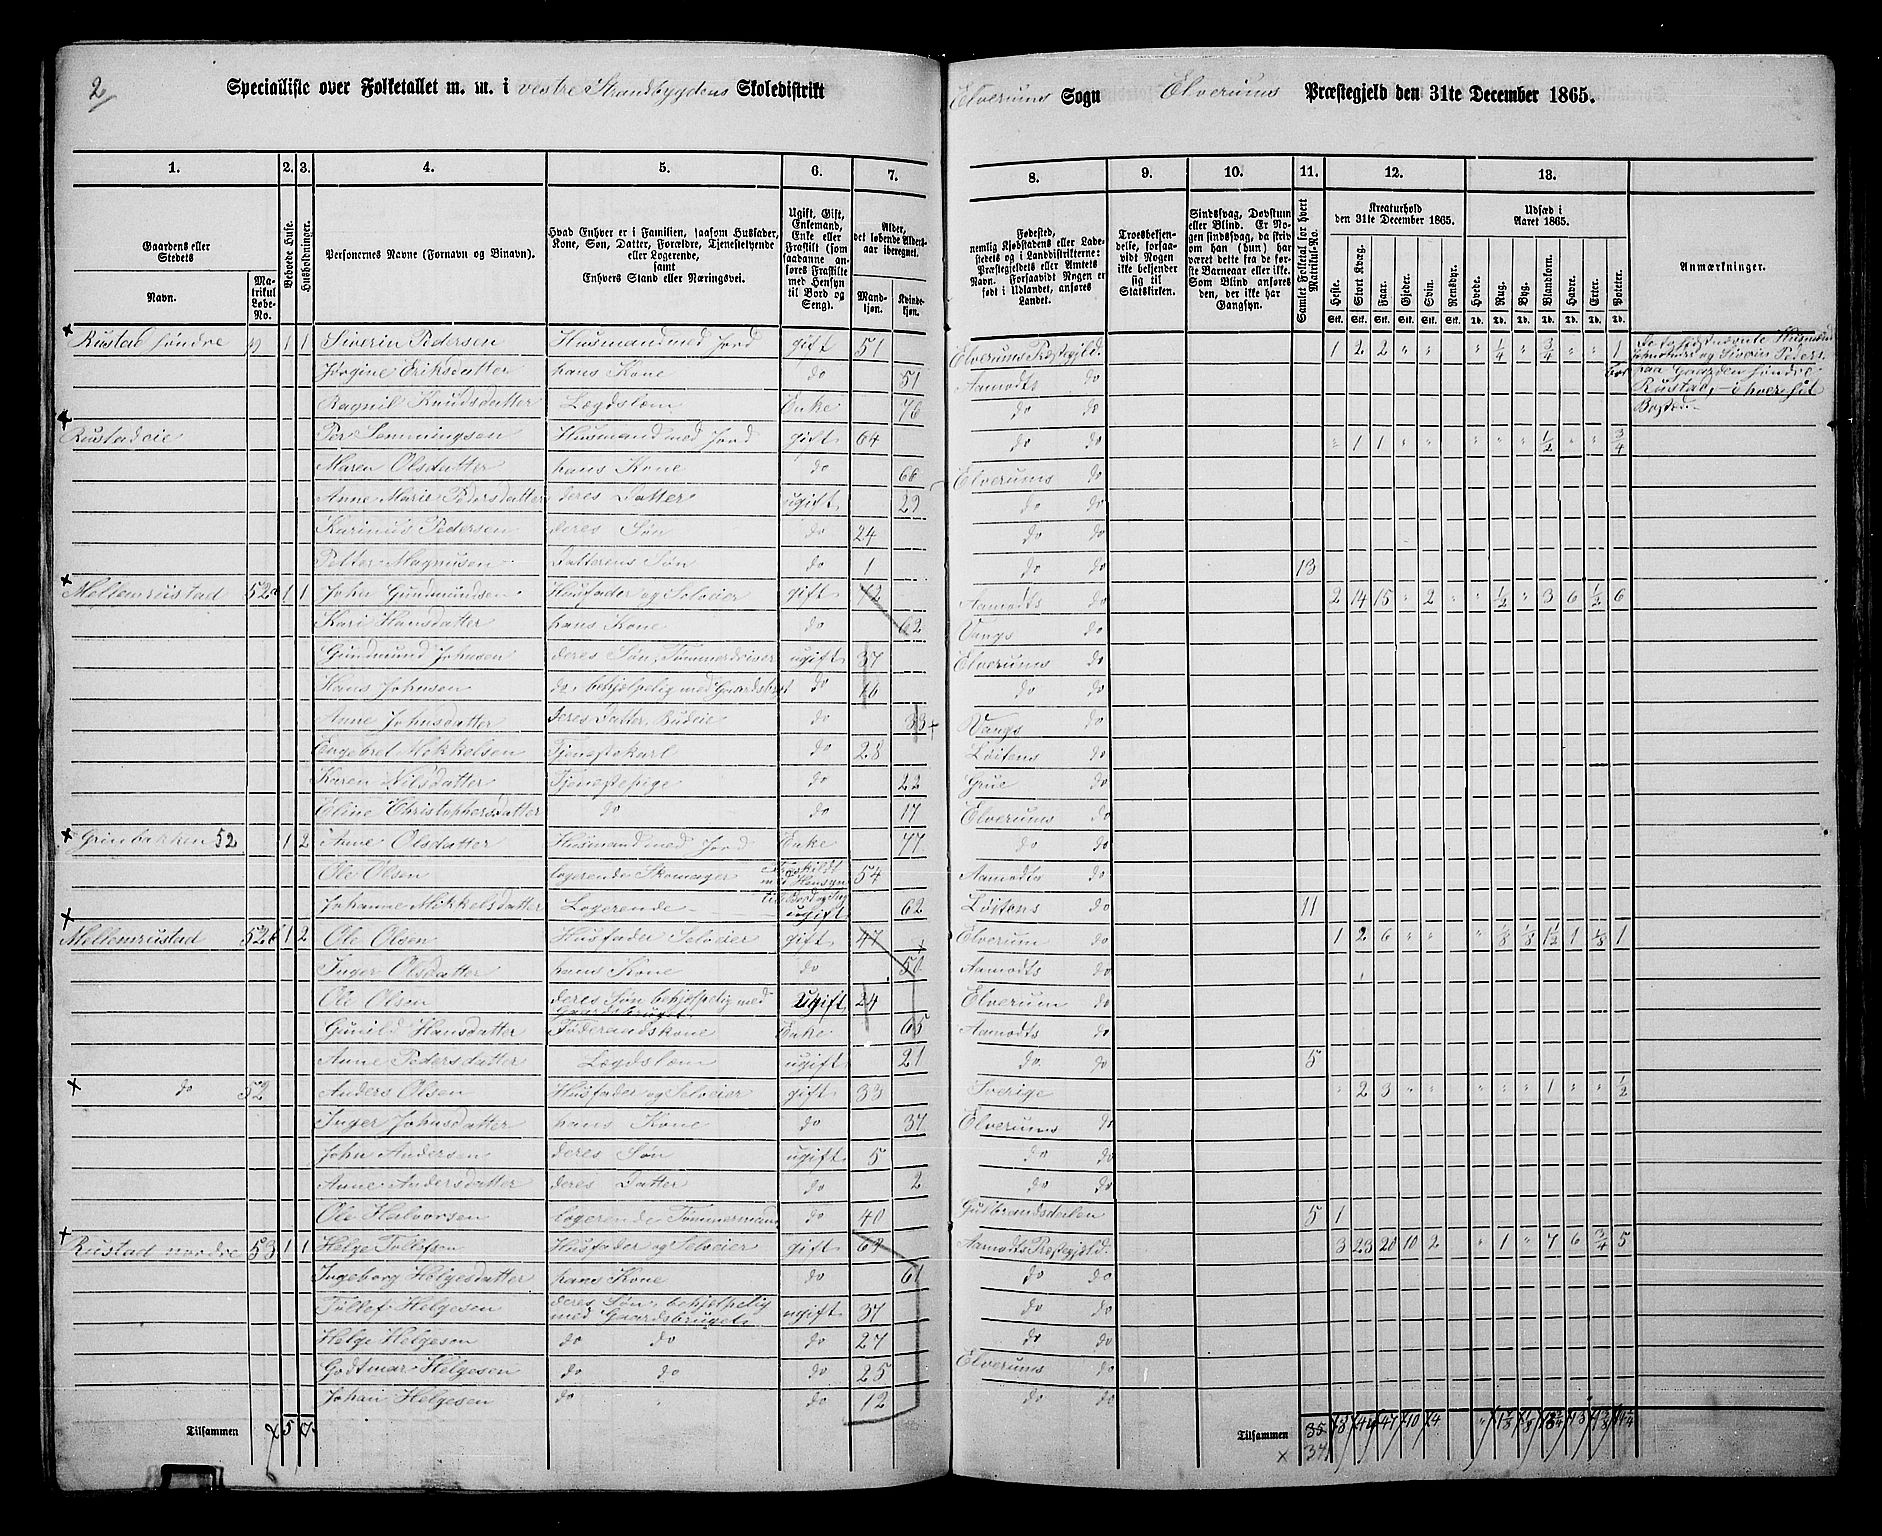 2/
Specialliste over Folketallet m. m. i vestre Strandbygdens Skoledistrikt
Elverums Sogn Elverums Præstegjeld den 31te December 1865.
1. 2. 3. 4. 5. 6. 7. 8. 9. 10. 11. 12. 13.
Gaardens eller Stedets
Navn. Matrikul Løbe-No.
Beboede Huse.
Husholdninger.
Personernes Navne (Fornavn og Binavn).
Hvad Enhver er i Familien, saasom Husfader, Kone, Søn, Datter, Forældre, Tjenestetyende eller Logerende, samt Enhvers Stand eller Næringsvei.
Ugift, Gift, Enkemand, Enke eller Fraskilt (som saadanne anføres Fraskilte med Hensyn til Bord og Seng).
Alder, det løbende Aldersaar iberegnet.
Mandkjøn. Kvindekjøn.
Fødested, nemlig Kjøbstadens eller Ladestedets og i Landdistrikterne: Præstegjeldets eller Amtets Navn. Forsaavidt Nogen er født i Udlandet, anføres Landet.
Troesbekjendelse, forsaavidt Nogen ikke bekjender sig til Statskirken.
Sindssvag, Døvstum eller Blind. Er Nogen sindssvag, da skriv om han (hun) har været dette fra de første Barneaar eller ikke. Som Blind anføres den, der ikke har Gangsyn.
Samlet Folketal for hvert Matrikul-No.
Kreaturhold den 31te December 1865.
Heste. Stort Kvæg. Faar. Gjeder. Svin. Rensdyr.
Udsæd i Aaret 1865.
Hvede. Rug. Byg. Blandkorn. Havre. Erter. Poteter.
Anmærkninger.
Rustad søndre 1 1 Siverin Pedersen Husmand med Jord gift 51 Elverums Præstegjld. 1 2 2 " " " " 1/4 " 3/4 " " 1
Jørgine Eriksdatter hans Kone do 51 Aamodts do
Ragnil Knudsdatter Lægdslem Enke 76 do do
Rustadeie Per Semmingsen Husmand med Jord gift 64 do do " 1 1 " " " " " " 1/2 " " 3/4
Maren Olsdatter hans Kone do 66 Elverums do
Anne Marie Pedersdatter deres Datter ugift 29 do do
Karinus Pedersen deres Søn do 24 do do
Petter Magnusen Datterens Søn do 1 do do 13
Mellemrustad 52a 1 1 John Gundmundsen Husfader og Selveier gift 72 Aamodts do 2 14 15 " 2 " " 1/2 " 3 6 1/2 6
Kari Hansdatter hans Kone do 62 Vangs do
Gundmund Johnsen deres Søn, Tømmerdriver ugift 37 Elverums do
Hans Johnsen do, behjælpelig med Gaardsbrget do 26 do do
Anne Johnsdatter deres Datter, Budeie do 33 Vangs do
Engebret Mikkelsen Tjenestekarl do 28 Løitens do
Karen Nilsdatter Tjenestepige do 22 Grue do
Eline Christophersdatter do do 17 Elverums do
Grinbakken 52 1 2 Anne Olsdatter Husmand med Jord Enke 77 do do
Ole Olsen logerende Skomager Fraskildt med Hensyn til Bord og Seng 54 Aamodts do
Johanne Mikkelsdatter Logerende ugift 62 Løitens do 11
Mellemrustad 52b 1 2 Ole Olsen Husfader Selveier gift 47 Elverum do 1 2 6 " " " " 1/8 1/8 1 1/2 1 1/8 1
Inger Olsdatter hans Kone do 50 Aamodts do
Ole Olsen deres Søn behjælpelig med Gaardsbruget Ugift 24 Elverum do
Gunild Hansdatter Føderaadskone Enke 65 Aamodts do
Anne Pedersdatter Lægdslem ugift 21 do do 5
do 52 Anders Olsen Husfader og Selveier gift 33 Sverige " 2 3 " " " " " " 1 " " 1/2
Inger Johnsdatter hans Kone do 37 Elverums do
John Andersen deres Søn ugift 5 do do
Anne Andersdatter deres Datter do 2 do do
Ole Halvorsen logerende Tømmermand do 40 Gudbrandsdalen 5 1
Rustad nordre 53 1 1 Helge Tollefsen Husfader og Selveier gift 62 Aamodts Præstegjeld. 3 23 20 10 2 " 1 " 7 6 3/4 5
Ingeborg Helgesdatter hans Kone do 61 do do
Tollef Helgesen deres Søn, behjælpelig med Gaardsbruget ugift 37 do do
Helge Helgesen do do do 27 do do
Godtmar Helgesen do do do 25 Elverums do
Johan Helgesen do do 12 do do
De to sidstnævnte Husmænd
og Siverin Peders.
paa Gaarden søndre
Rustad, i hver sit
Bosted
Tilsammen 5 7
Tilsammen 35
34